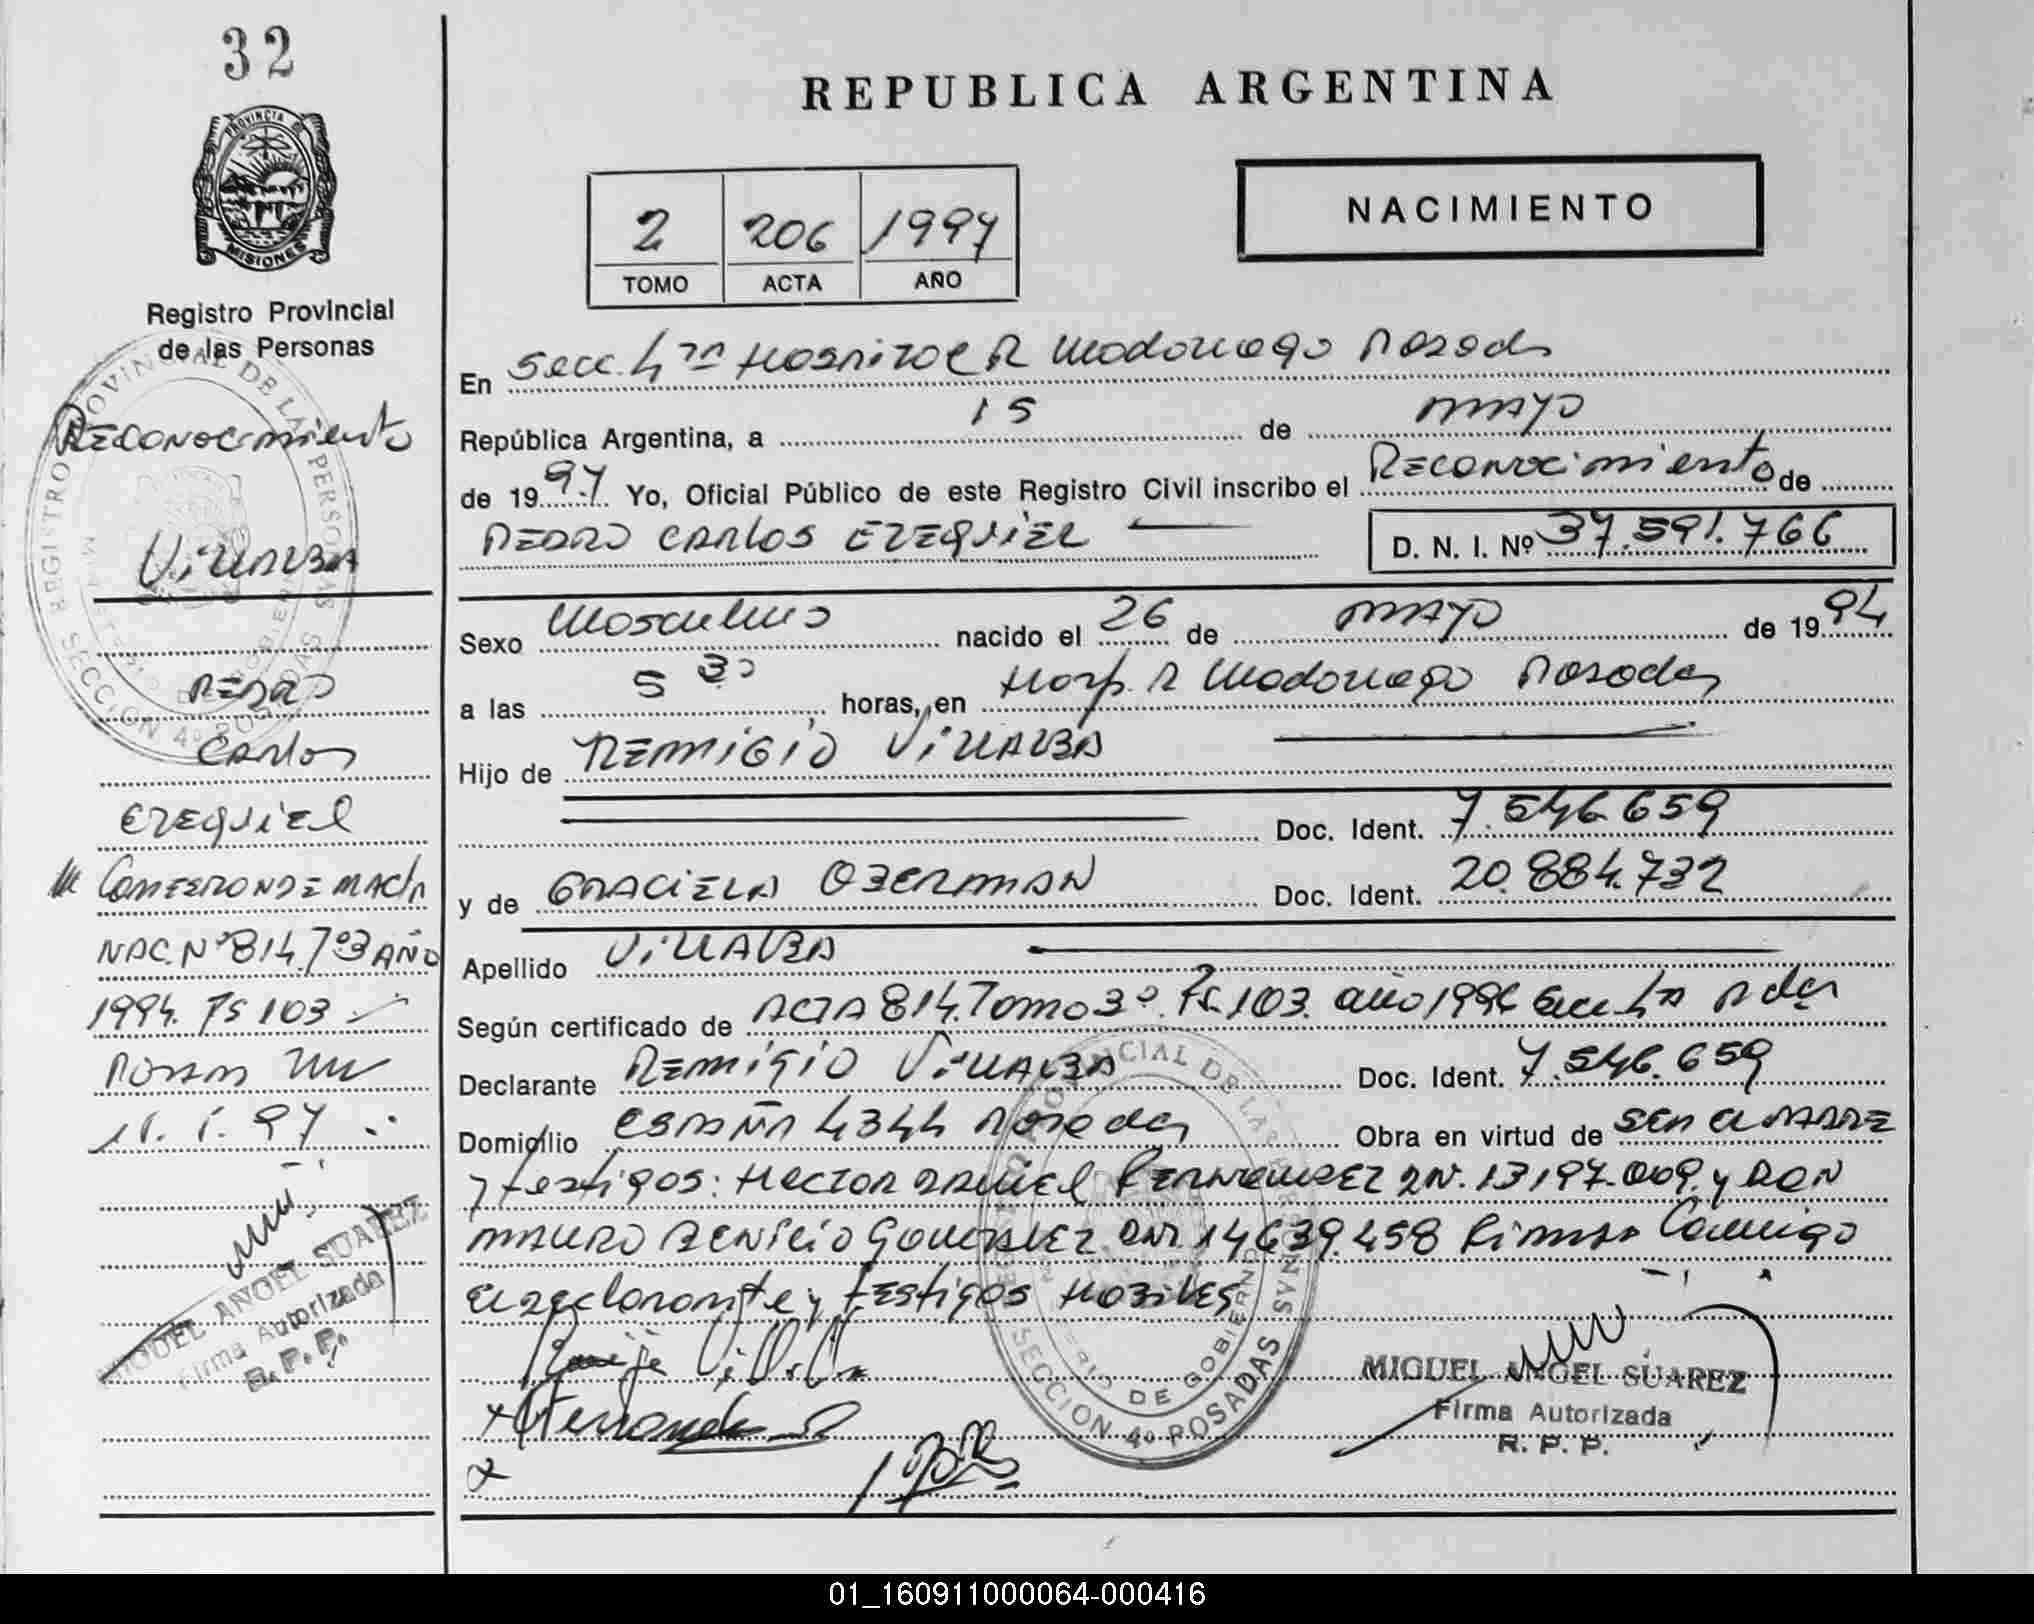 32
PROVINCIA DE
MISIONES
Registro Provincial
de las Personas
REGISTRO PROVINCIAL DE LAS PERSONAS
SECCION 4º POSADAS
Reconocimiento
Villalba
Pedro
Carlos
Ezequiel
Corresponde macta
Nac. Nº 814. Tº 3 AÑO
1994. Fs 103
11. 97
MIGUEL ANGEL SUAREZ
Firma Autorizada
R. P. P.
REPUBLICA ARGENTINA
2 206 1997
TOMO ACTA AÑO
NACIMIENTO
En Secc. 4ta Hospital R Madariaga Posadas
República Argentina, a 15 de MAYO
de 1997 Yo, Oficial Público de este Registro Civil inscribo el Reconocimiento de
PEDRO CARLOS EZEQUIEL D. N. I. Nº 37.591.766
Sexo Masculino nacido el 26 de MAYO de 1994
a las 5 30 horas, en Hosp. R Madariaga Posadas
Hijo de REMIGIO VILLALBA
Doc. Ident. 7.546.659
y de GRACIELA OBERMAN Doc. Ident. 20.884.732
Apellido VILLALBA
Según certificado de ACTA 814. Tomo 3º. Fs. 103. año 1994 Secc 4ta Pdas
Declarante REMIGIO VILLALBA Doc. Ident. 7.546.659
Domicilio ESPAÑA 4344 Posadas Obra en virtud de SER el PADRE
y testigos: HECTOR DANIEL FERNANDEZ DNI. 13197.009. y DON
MAURO BENICIO GONZALEZ DNI 14639.458 Firman Conmigo
el declarante y testigos Habiles
Remigio Villalba
MIGUEL ANGEL SUAREZ
Firma Autorizada
R. P. P.
PROVINCIAL DE LAS PERSONAS
MINISTERIO DE GOBIERNO
SECCION 4º POSADAS
01_160911000064-000416